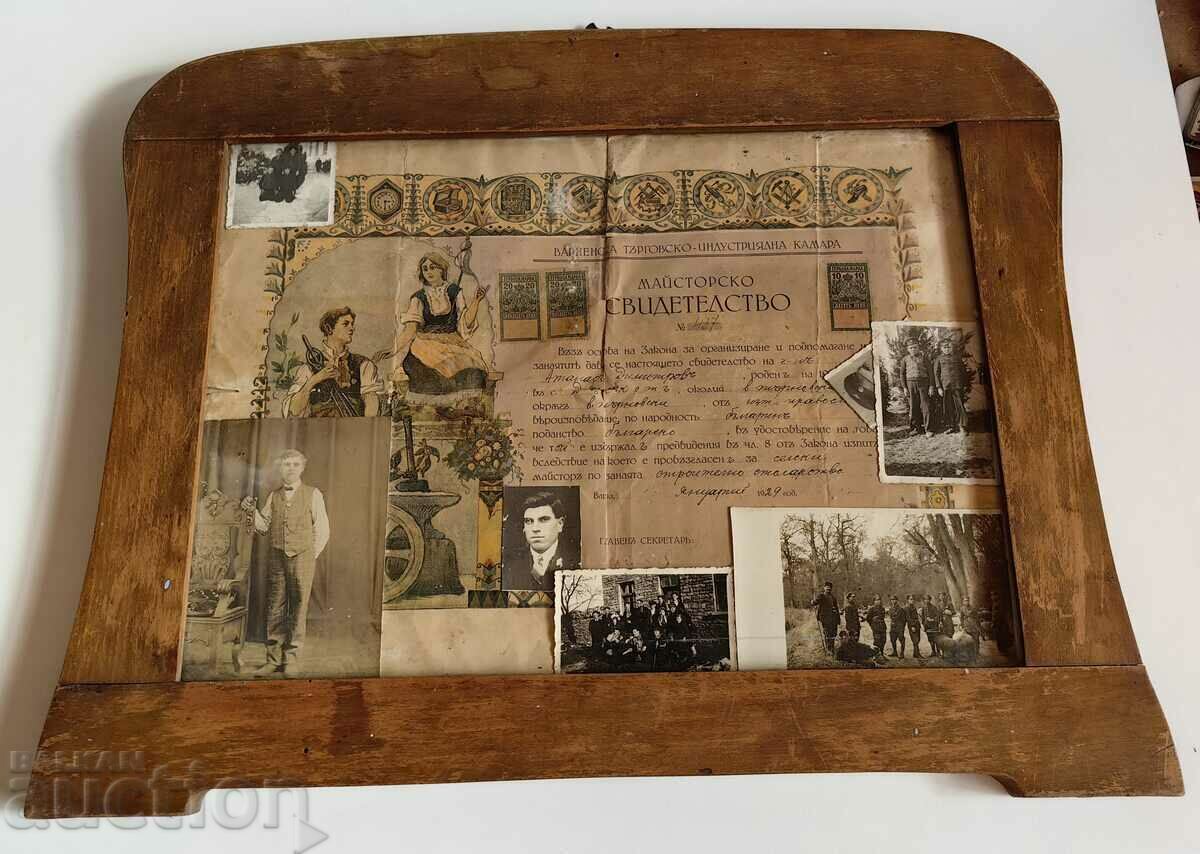 ВАРНЕНСКА ТЪРГОВСКО-ИНДУСТРИЯЛНА КАМАРА
МАЙСТОРСКО
СВИДЕТЕЛСТВО
№
20 20
20 20
10 10
Възъ основа на Закона за организиране и подпомагане
занаятитѣ дава се настоящето свидетелство на г-нъ
Атанасъ Димитровъ, роденъ на
въ с. околия
окрѫгъ отъ изт. правосл.
вѣроизповѣдание, по народность българинъ
поданство българско, въ удостовѣрение на това,
че той е издържалъ предвидения въ чл. 8 отъ Закона изпитъ
вследствие на което е провъзгласенъ за селски
майсторъ по занаята строително столарство
Варна, януарий 1929 год.
ГЛАВЕНЪ СЕКРЕТАРЬ:
BALKAN
auction